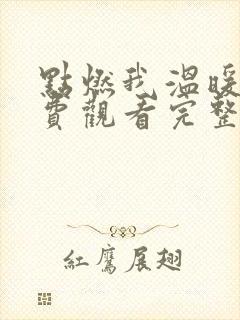 點燃我溫暖
費觀看完整
紅鷹展翅